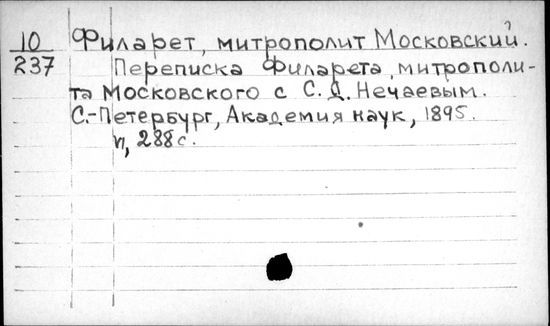 10 Филарет, митрополит Московский.
237 Переписка Филарета, митрополи-
та Московского с С. Д. Нечаевым.
С.-Петербург, Академия наук, 1895.
VI, 288 с.